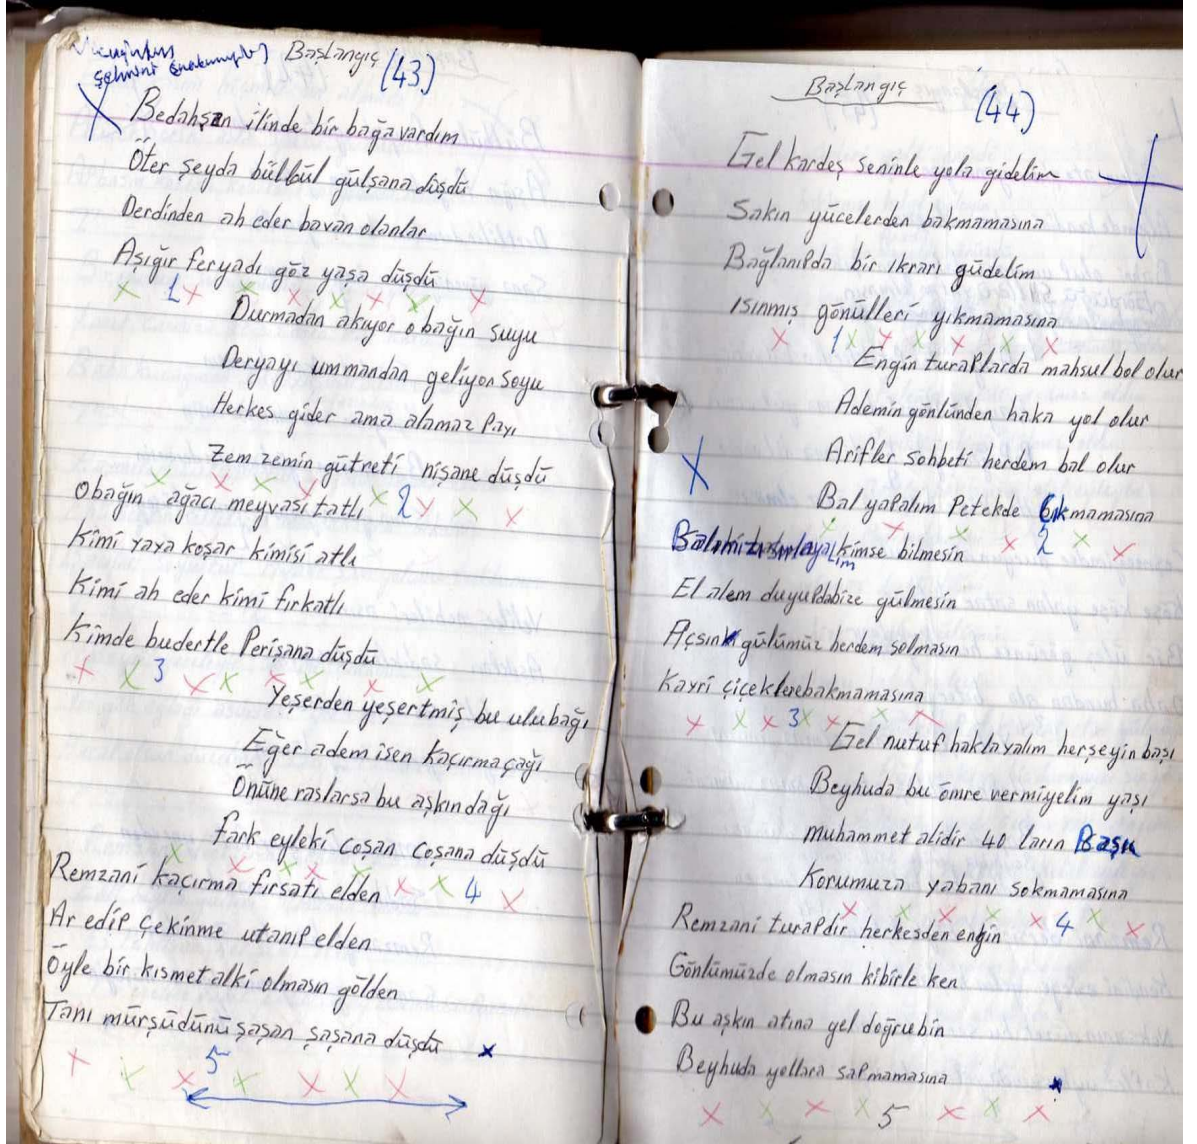 Başlangıç (43)
Bedahşan ilinde bir bağa vardım
Öter şeyda bülbül gülşana düşdü
Derdinden ah eder bavan olanlar
Aşığır feryadı göz yaşa düşdü
1
Durmadan akıyor o bağın suyu
Deryayı ummandan geliyor soyu
Herkes gider ama alamaz Payı
Zem zemin gütreti nişane düşdü
2
Obağın ağacı meyvası tatlı
Kimi yaya koşar kimisi atlı
Kimi ah eder kimi firkatlı
Kimde budertle Perişana düşdü
3
Yeşerden yeşertmiş bu ulubağı
Eğer adem isen kaçırma çağı
Önüne raslarsa bu aşkın dağı
fark eyleki coşan coşana düşdü
4
Remzani kaçırma fırsatı elden
Ar edip çekinme utanıp elden
Öyle bir kısmet alki olmasın gölden
Tanı mürşüdünü şaşan şaşana düşdü
5
Başlangıç (44)
Gel kardeş seninle yola gidelim
Sakın yücelerden bakmamasına
Bağlanıpda bir ikrarı güdelim
ısınmış gönülleri yıkmamasına
1
Engin turaplarda mahsul bol olur
Ademin gönlünden haka yol olur
Arifler sohbeti herdem bal olur
Bal yapalım Petekde çıkmamasına
2
kimse bilmesin
El alem duyupdabize gülmesin
Açsın gülümüz herdem solmasın
Kayri çiçeklerebakmamasına
3
Gel nutuf haklayalım herşeyin başı
Beyhuda bu ömre vermiyelim yaşı
muhammet alidir 40 ların Başı
Korumuza yabanı sokmamasına
4
Remzani turapdır herkesden engin
Gönlümüzde olmasın kibirle ken
Bu aşkın atına gel doğru bin
Beyhuda yollara sapmamasına
5